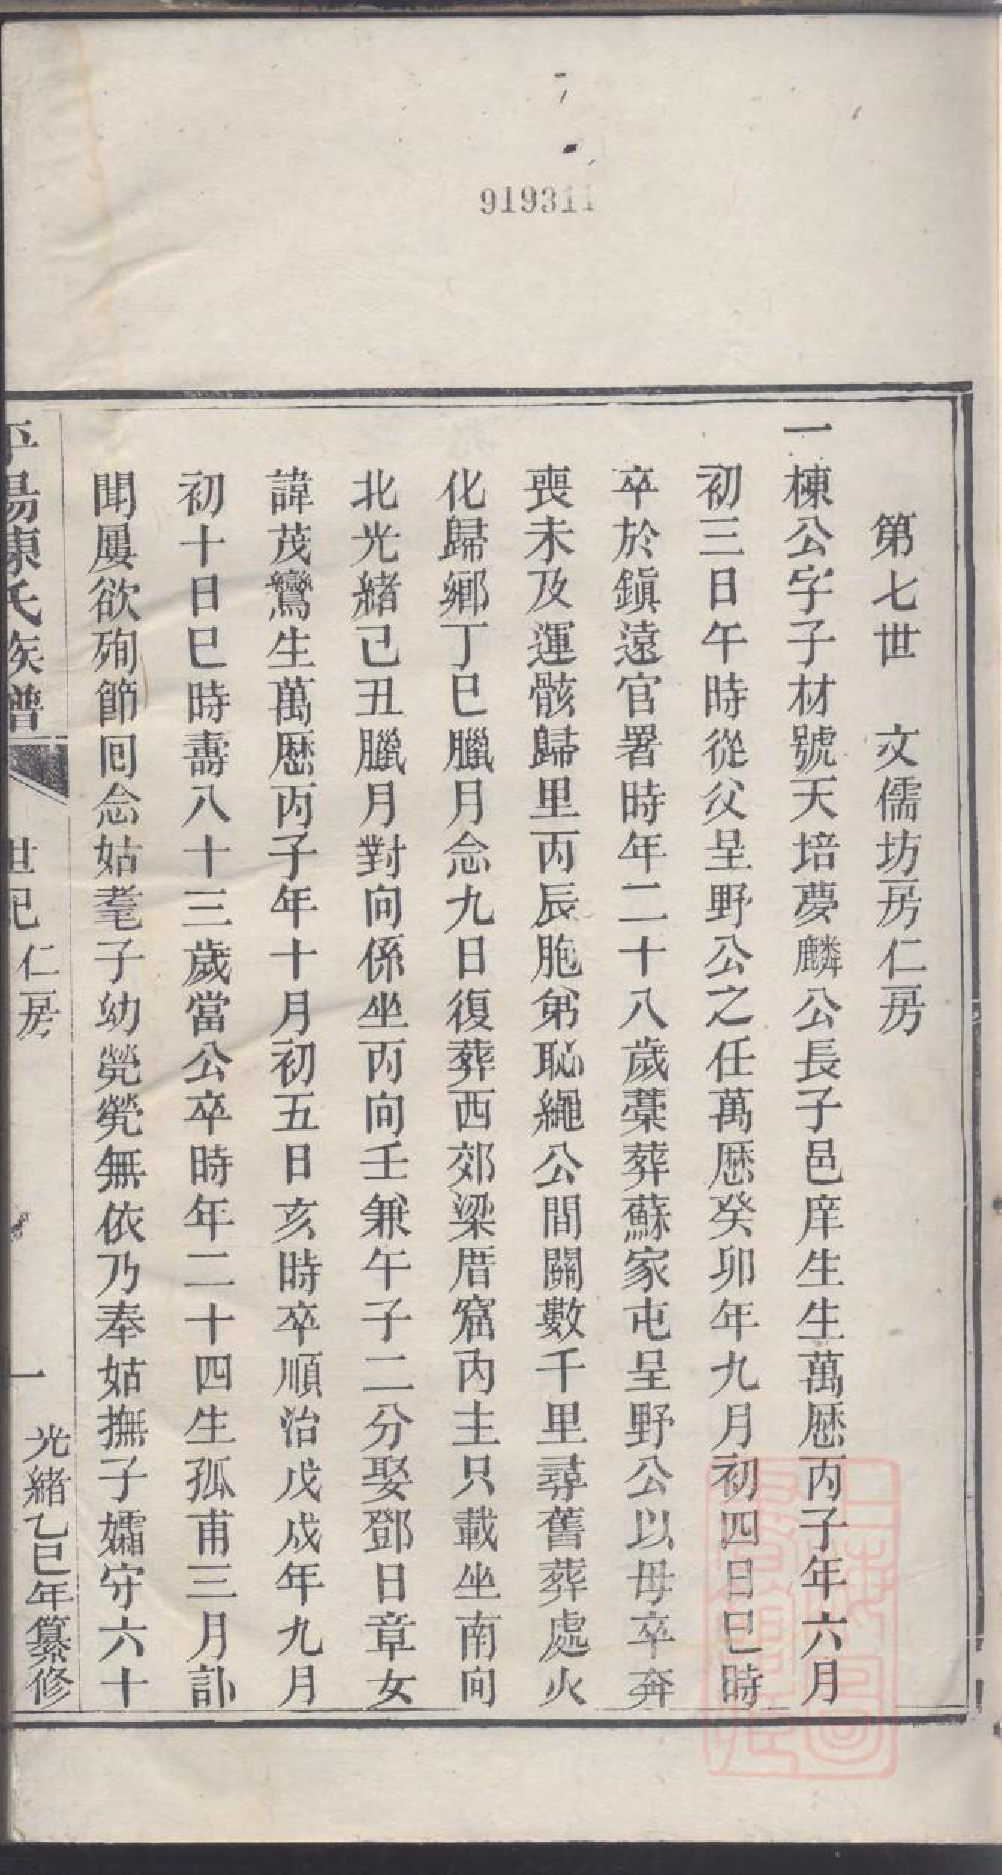 919311
第七世　文儒坊房仁房
一棟公字子材號天培夢麟公長子邑庠生生萬厯丙子年六月
初三日午時從父呈野公之任萬厯癸卯年九月初四日巳時
卒於鎭遠官署時年二十八歲藁葬蘇家屯呈野公以母卒奔
喪未及運骸歸里丙辰胞弟恥繩公間關數千里尋舊葬處火
化歸鄉丁巳臘月念九日復葬西郊梁厝窟內主只載坐南向
北光緒己丑臘月對向係坐丙向壬兼午子二分娶鄧日章女
諱茂鸞生萬厯丙子年十月初五日亥時卒順治戊戌年九月
初十日巳時壽八十三歲當公卒時年二十四生孤甫三月訃
聞屢欲殉節囘念姑耄子幼煢煢無依乃奉姑撫子孀守六十
平陽陳氏族譜　世紀　仁房　一　光緒乙巳年纂修